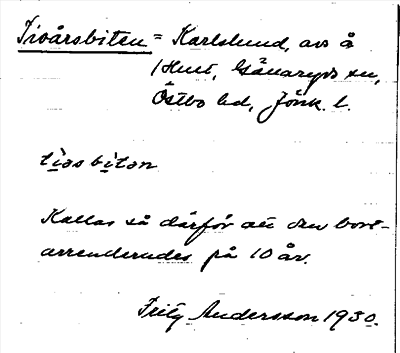 Tioårsbiten = Karlslund, avs å
Hult, Gällaryds sn,
Östbo hd, Jönk. l.
tiǝsbitǝn
Kallas så därför att den bort-
arrenderades på 10 år.
Fritz Andersson 1930.